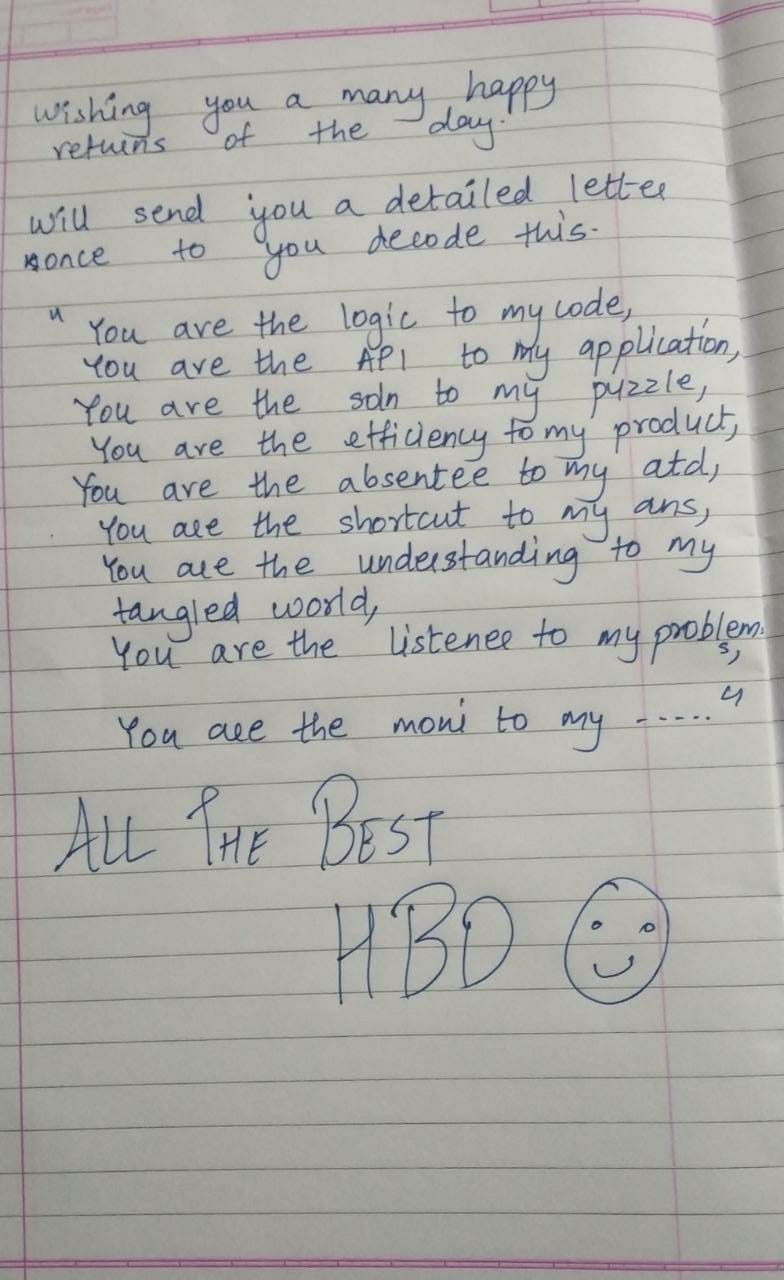 Wishing you a many happy
returns of the day.
Will send you a detailed letter
once to you decode this.
" You are the logic to my code,
You are the API to my application,
You are the soln to my puzzle,
You are the efficiency to my product,
You are the absentee to my atd,
You are the shortcut to my ans,
You are the understanding to my
tangled world,
You are the listener to my problems,
You are the moni to my ....."
ALL THE BEST
HBD